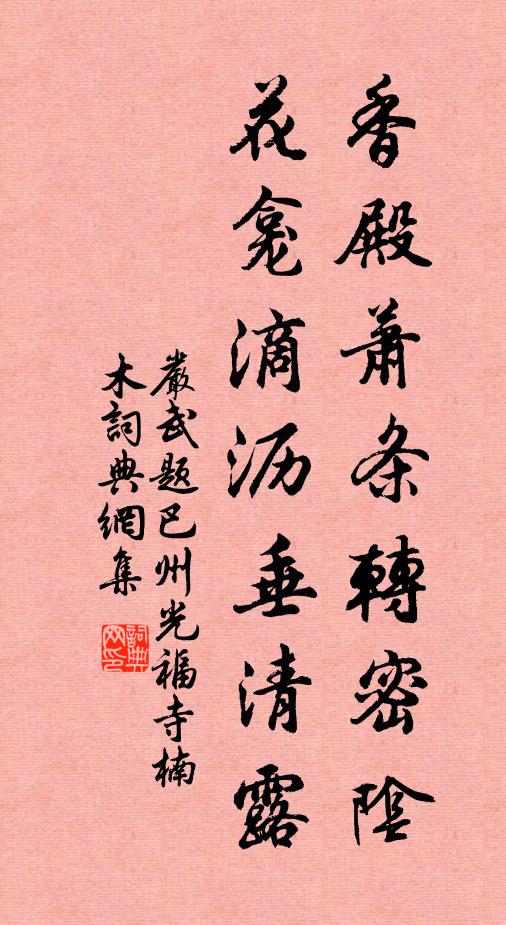 香殿萧条轉密陰
花龛滴沥垂清露
嚴武题巴州光福寺楠
木詞典網集
詞典網印